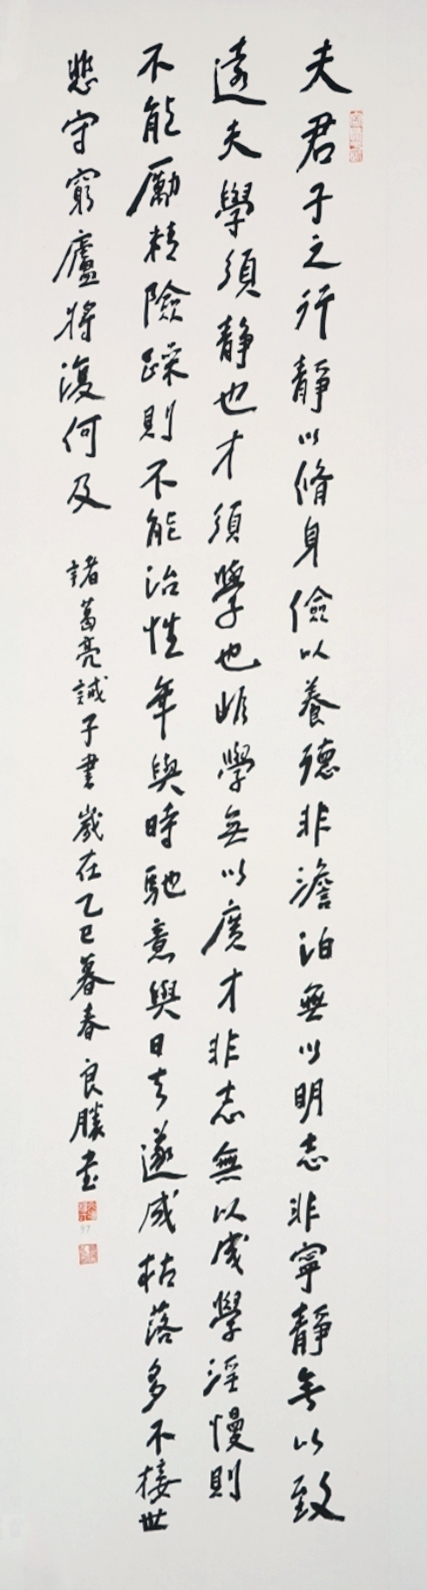 夫君子之行靜以脩身儉以養德非澹泊無以明志非寧靜無以致
遠夫學須靜也才須學也非學無以廣才非志無以成學淫慢則
不能勵精險躁則不能治性年與時馳意與日去遂成枯落多不接世
悲守窮廬將復何及 諸葛亮誡子書歲在乙巳暮春良勝書